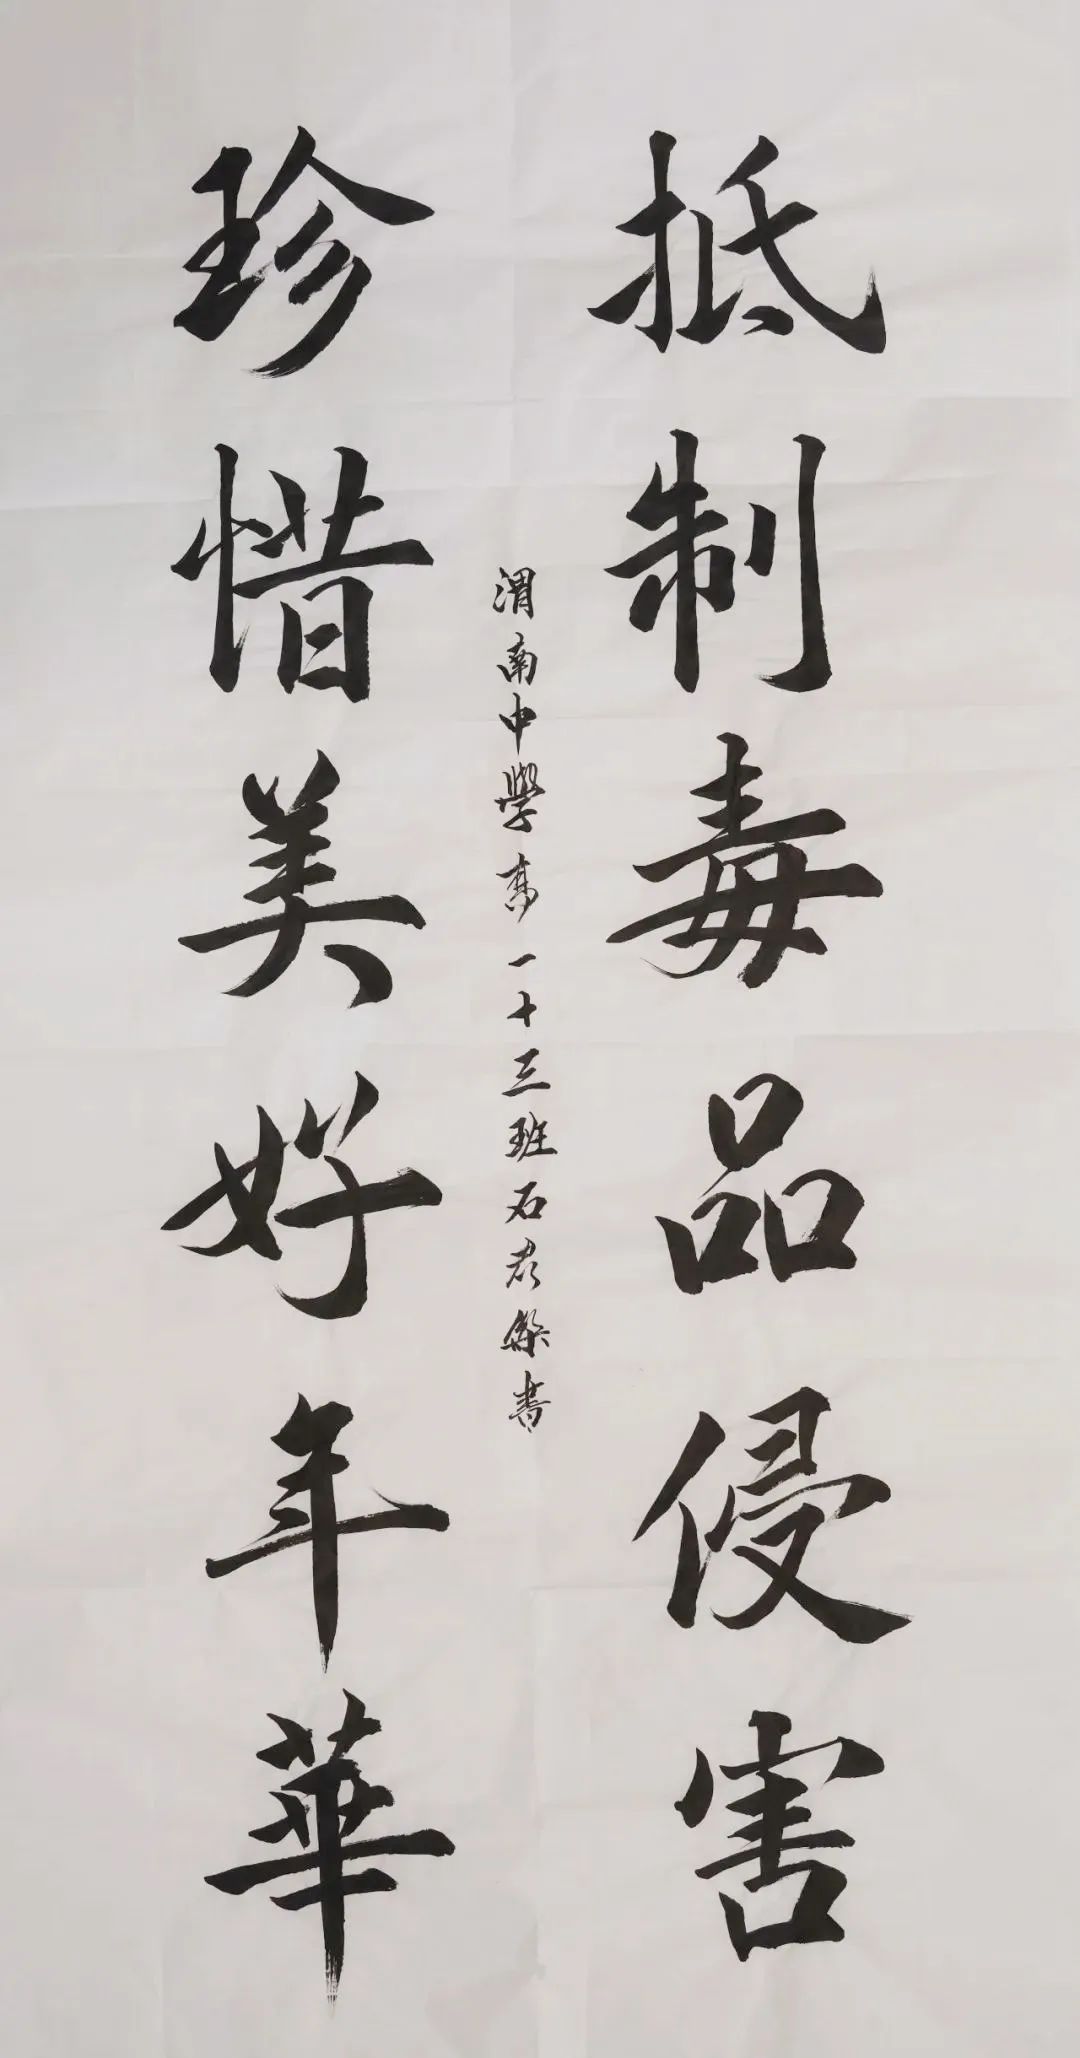 抵制毒品侵害
珍惜美好年華
渭南中學高一十三班石君書